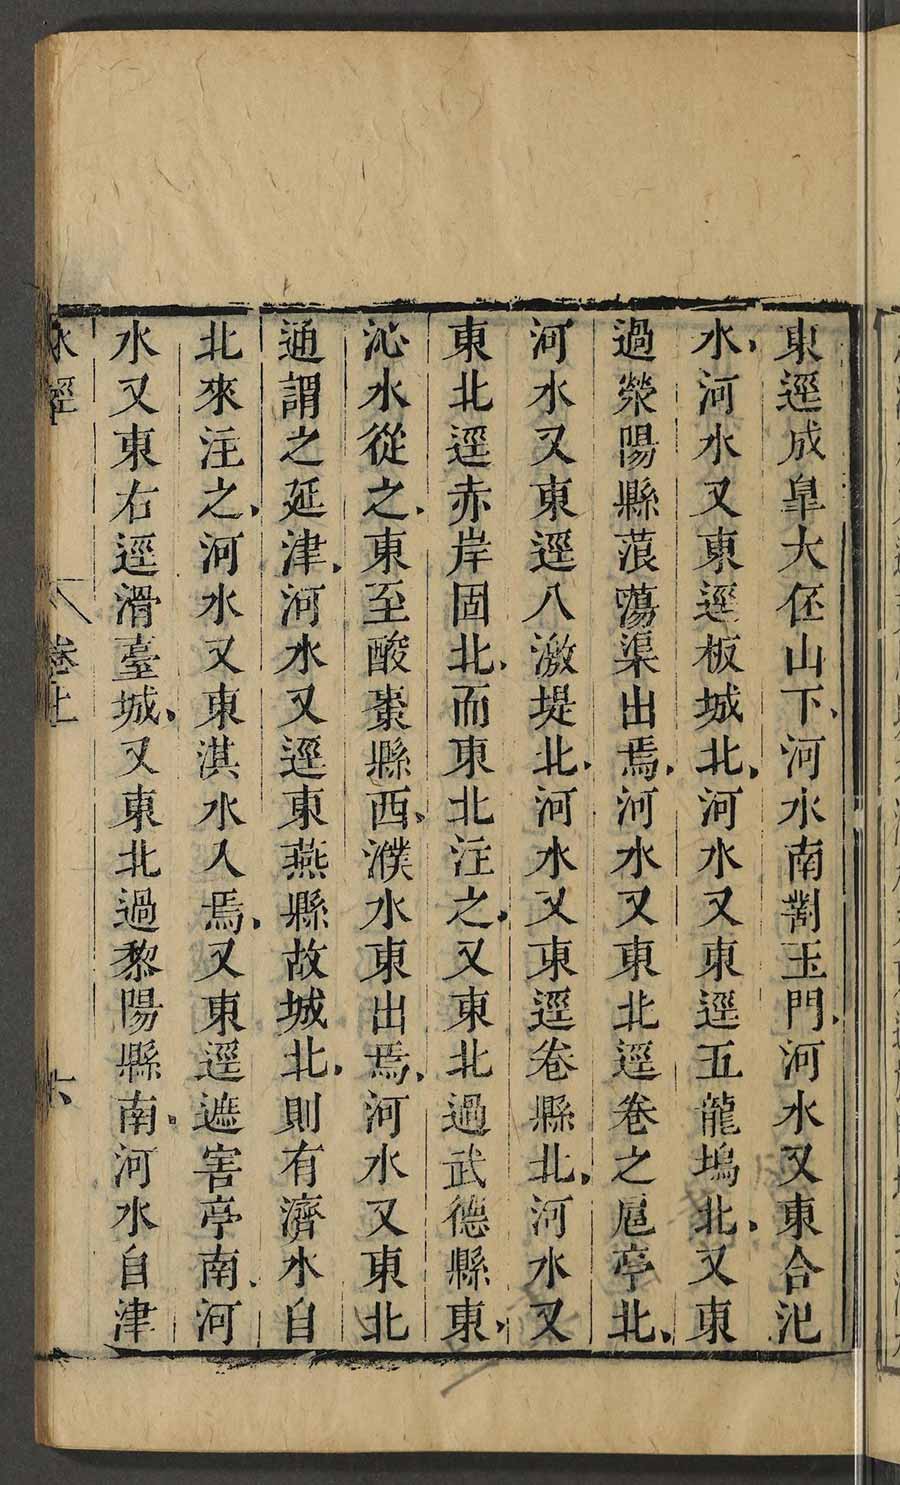 東逕成臯大伾山下河水南對玉門河水又東合汜
水河水又東逕板城北河水又東逕五龍塢北又東
過滎陽縣蒗蕩渠出焉河水又東北逕卷之扈亭北
河水又東逕八激堤北河水又東逕卷縣北河水又
東北逕赤岸固北而東北注之又東北過武德縣東
沁水從之東至酸棗縣西濮水東出焉河水又東北
通謂之延津河水又逕東燕縣故城北則有濟水自
北來注之河水又東淇水入焉又東逕遮害亭南河
水又東右逕滑臺城又東北過黎陽縣南河水自津
水經 卷上 六